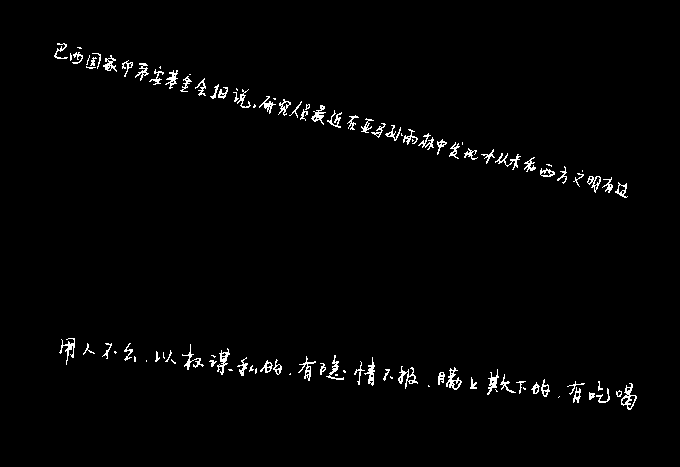 巴西国家印第安基金会担说，研究人员最近在亚马孙雨林中发现一个从未和西方文明有过
用人不公、以权谋私的，有隐情不报、瞒上欺下的，有吃喝